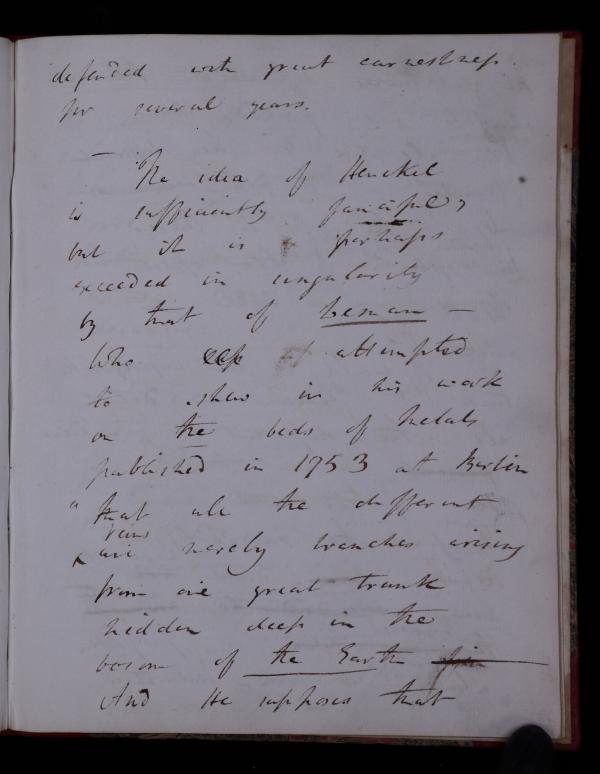 defended with great earnestness
for several years.
— The idea of Henckel
is sufficiently fanciful,
but it is perhaps
exceeded in singularity
by that of Leman —
Who attempted
to shew in his work
on the beds of Metals
published in 1753 at Berlin
"that all the different
veins
are merely branches arising
from one great trunk
hidden deep in the
bosom of the Earth
And He supposes that